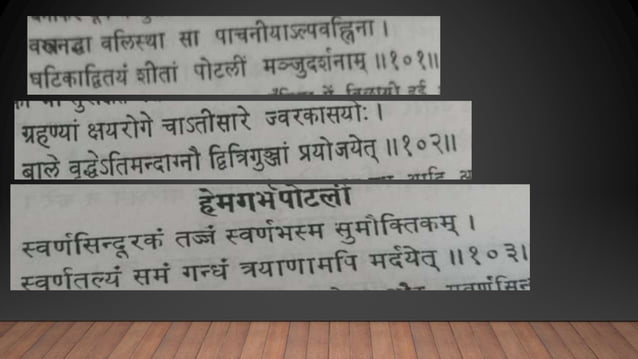 वस्त्रनद्धा वलिस्था सा पाचनीयाऽल्पवह्निना ।
घटिकाद्वितयं शीतां पोटलीं मञ्जुदर्शनाम् ॥१०१॥
ग्रहण्यां क्षयरोगे चाऽतीसारे ज्वरकासयोः ।
बाले वृद्धेऽतिमन्दाग्नौ द्वित्रिगुञ्जां प्रयोजयेत् ॥१०२॥
हेमगर्भपोटली
स्वर्णसिन्दूरकं तज्जं स्वर्णभस्म सुमौक्तिकम् ।
स्वर्णतुल्यं समं गन्धं त्रयाणामपि मर्दयेत् ॥१०३।